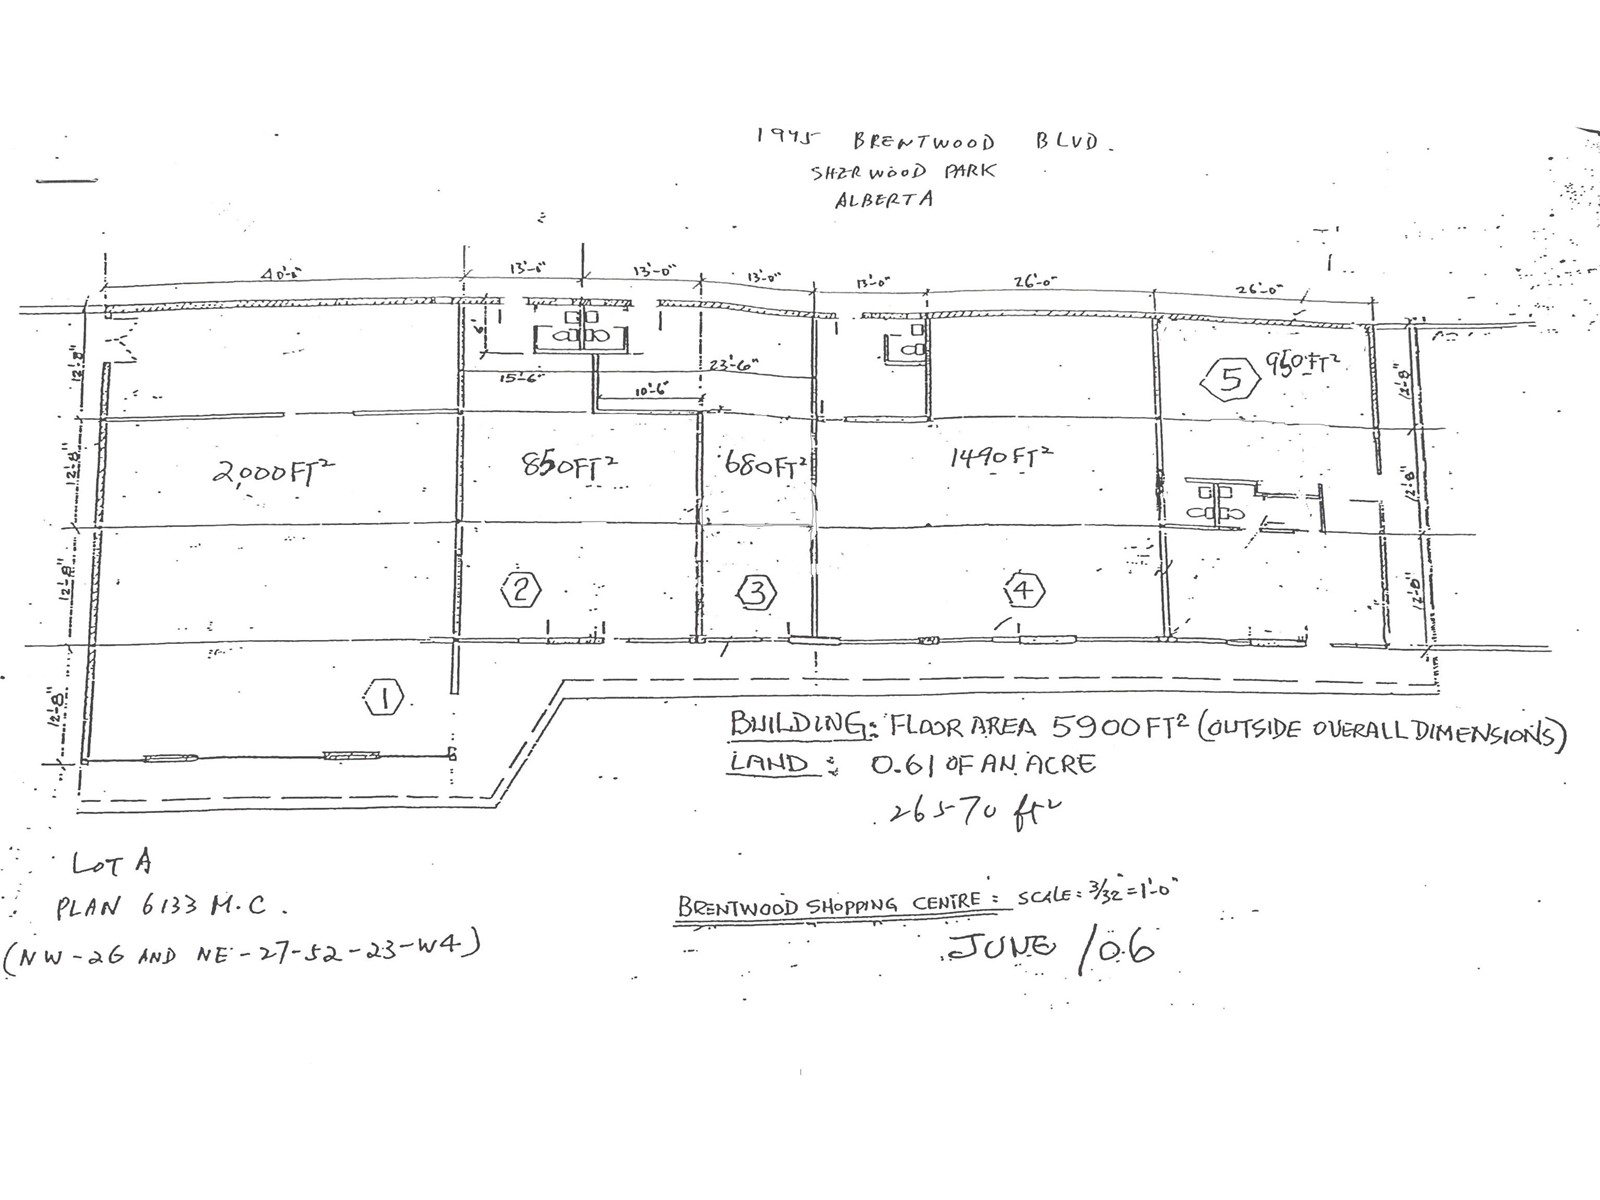 1945 BRENTWOOD BLVD.
SHERWOOD PARK
ALBERTA
40'-0" 13'-0" 13'-0" 13'-0" 13'-0" 26'-0" 26'-0"
6'
15'-6" 23'-6"
10'-6"
12'-8" 12'-8"
5 950 FT²
2,000 FT² 850 FT² 680 FT² 1490 FT²
12'-8" 12'-8"
12'-8" 2 3 4 12'-8"
12'-8" 1
BUILDING: FLOOR AREA 5900 FT² (OUTSIDE OVERALL DIMENSIONS)
LAND: 0.61 OF AN ACRE
26570 ft²
LOT A
PLAN 6133 M.C.
(NW-26 AND NE-27-52-23-W4)
BRENTWOOD SHOPPING CENTRE: SCALE: 3/32"=1'-0"
JUNE /06